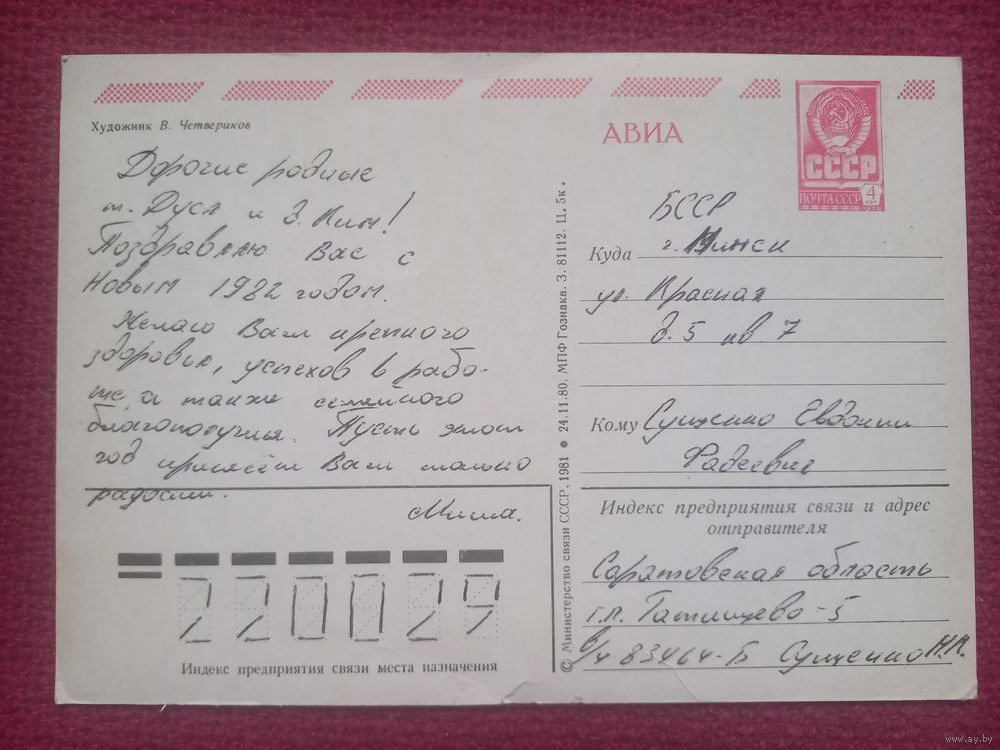 Художник В. Четвериков
АВИА
СССР
ПОЧТА СССР
4
коп
Дорогие родные
т. Дуся и д. Ким!
Поздравляю Вас с
Новым 1982 годом.
Желаю Вам крепкого
здоровья, успехов в рабо-
те, а также семейного
благополучия. Пусть этот
год принесёт Вам только
радости.
Миша.
220029
Индекс предприятия связи места назначения
© Министерство связи СССР, 1981 • 24.11.80. МПФ Гознака. З. 81112. Ц. 5к.
БССР
Куда г. Минск
ул. Красная
д. 5 кв. 7
Кому Сущенко Евдокии
Фадеевне
Индекс предприятия связи и адрес
отправителя
Саратовская область
г.п. Татищево-5
в/ч 83464-Б Сущенко М.
www.ay.by